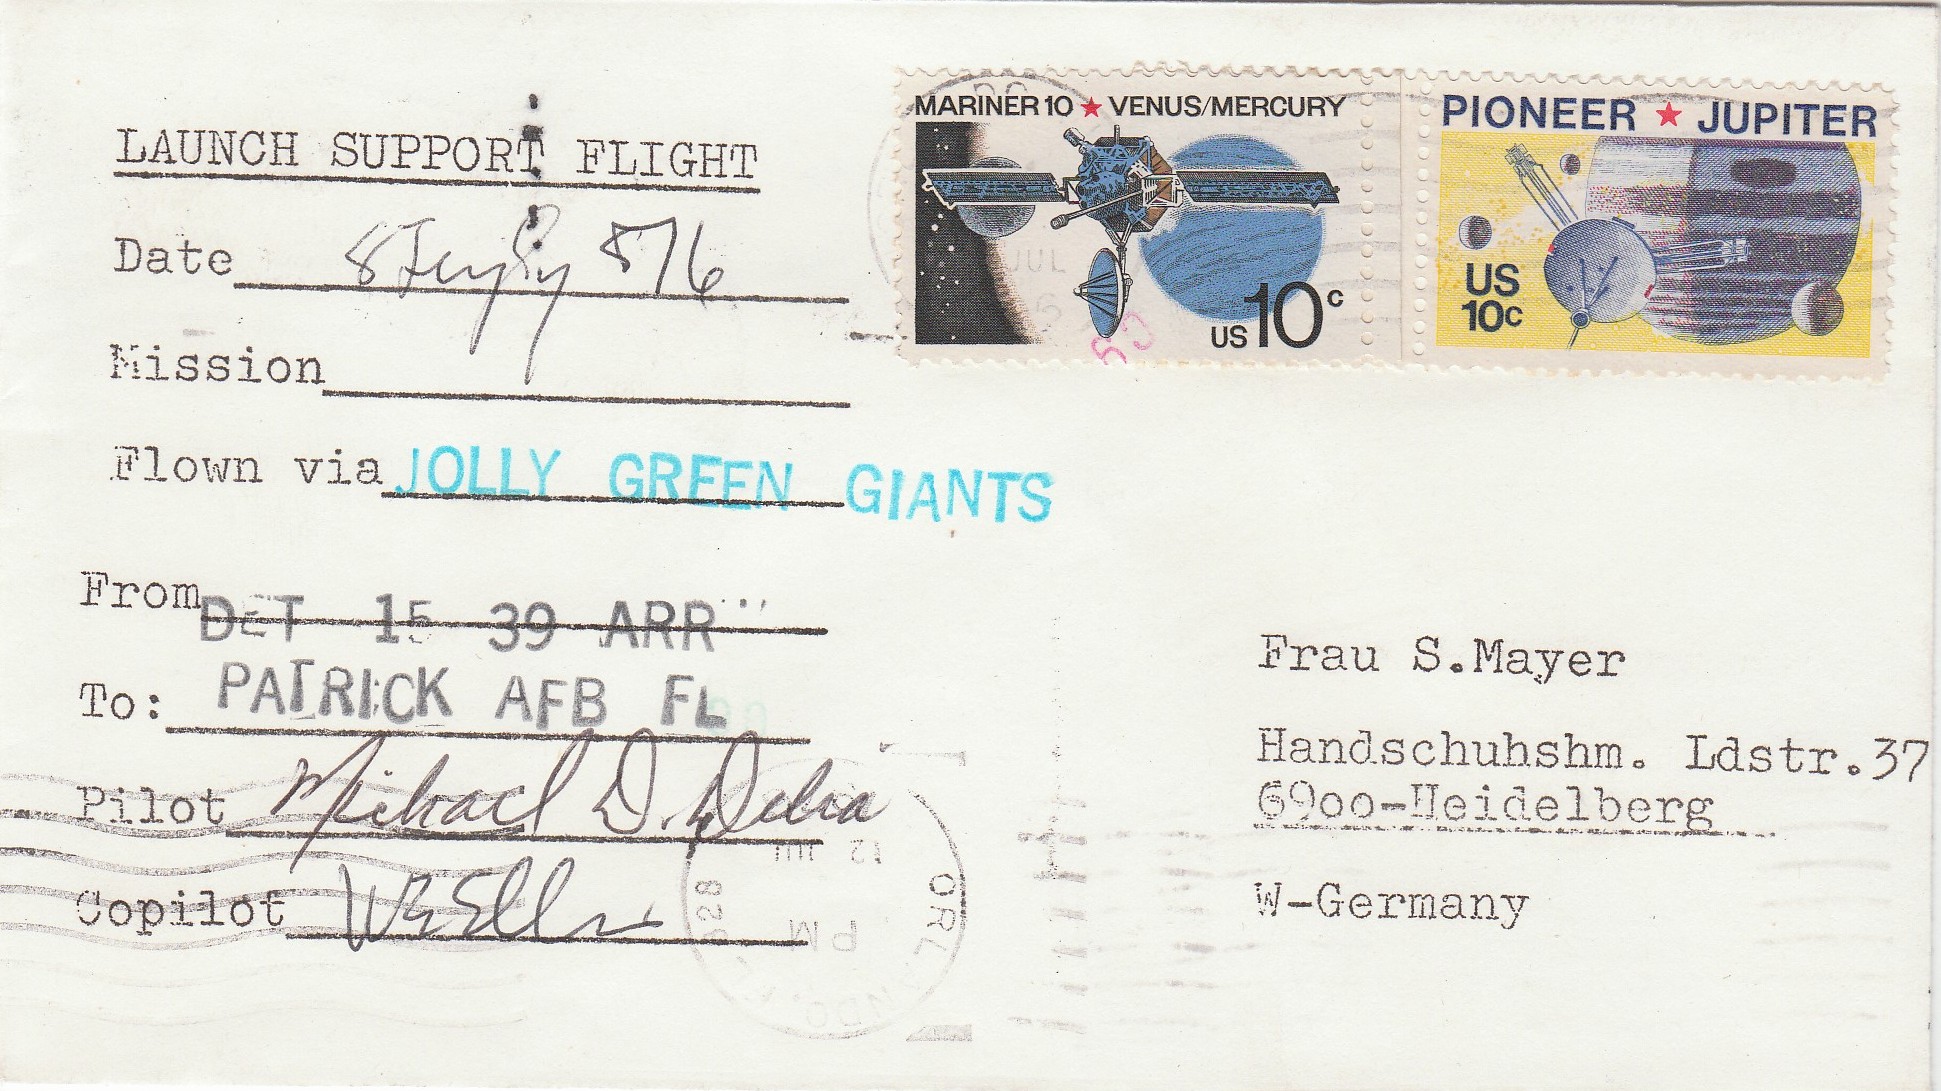 LAUNCH SUPPORT FLIGHT
Date 8 76
Mission
Flown via JOLLY GREEN GIANTS
From DET 15 39 ARR
To: PATRICK AFB FL
Pilot Michael D.
Copilot
MARINER 10 ★ VENUS/MERCURY
US 10c
PIONEER ★ JUPITER
US
10c
JUL
Frau S.Mayer
Handschuhshm. Ldstr.37
6900-Heidelberg
W-Germany
12 JUL
PM
328